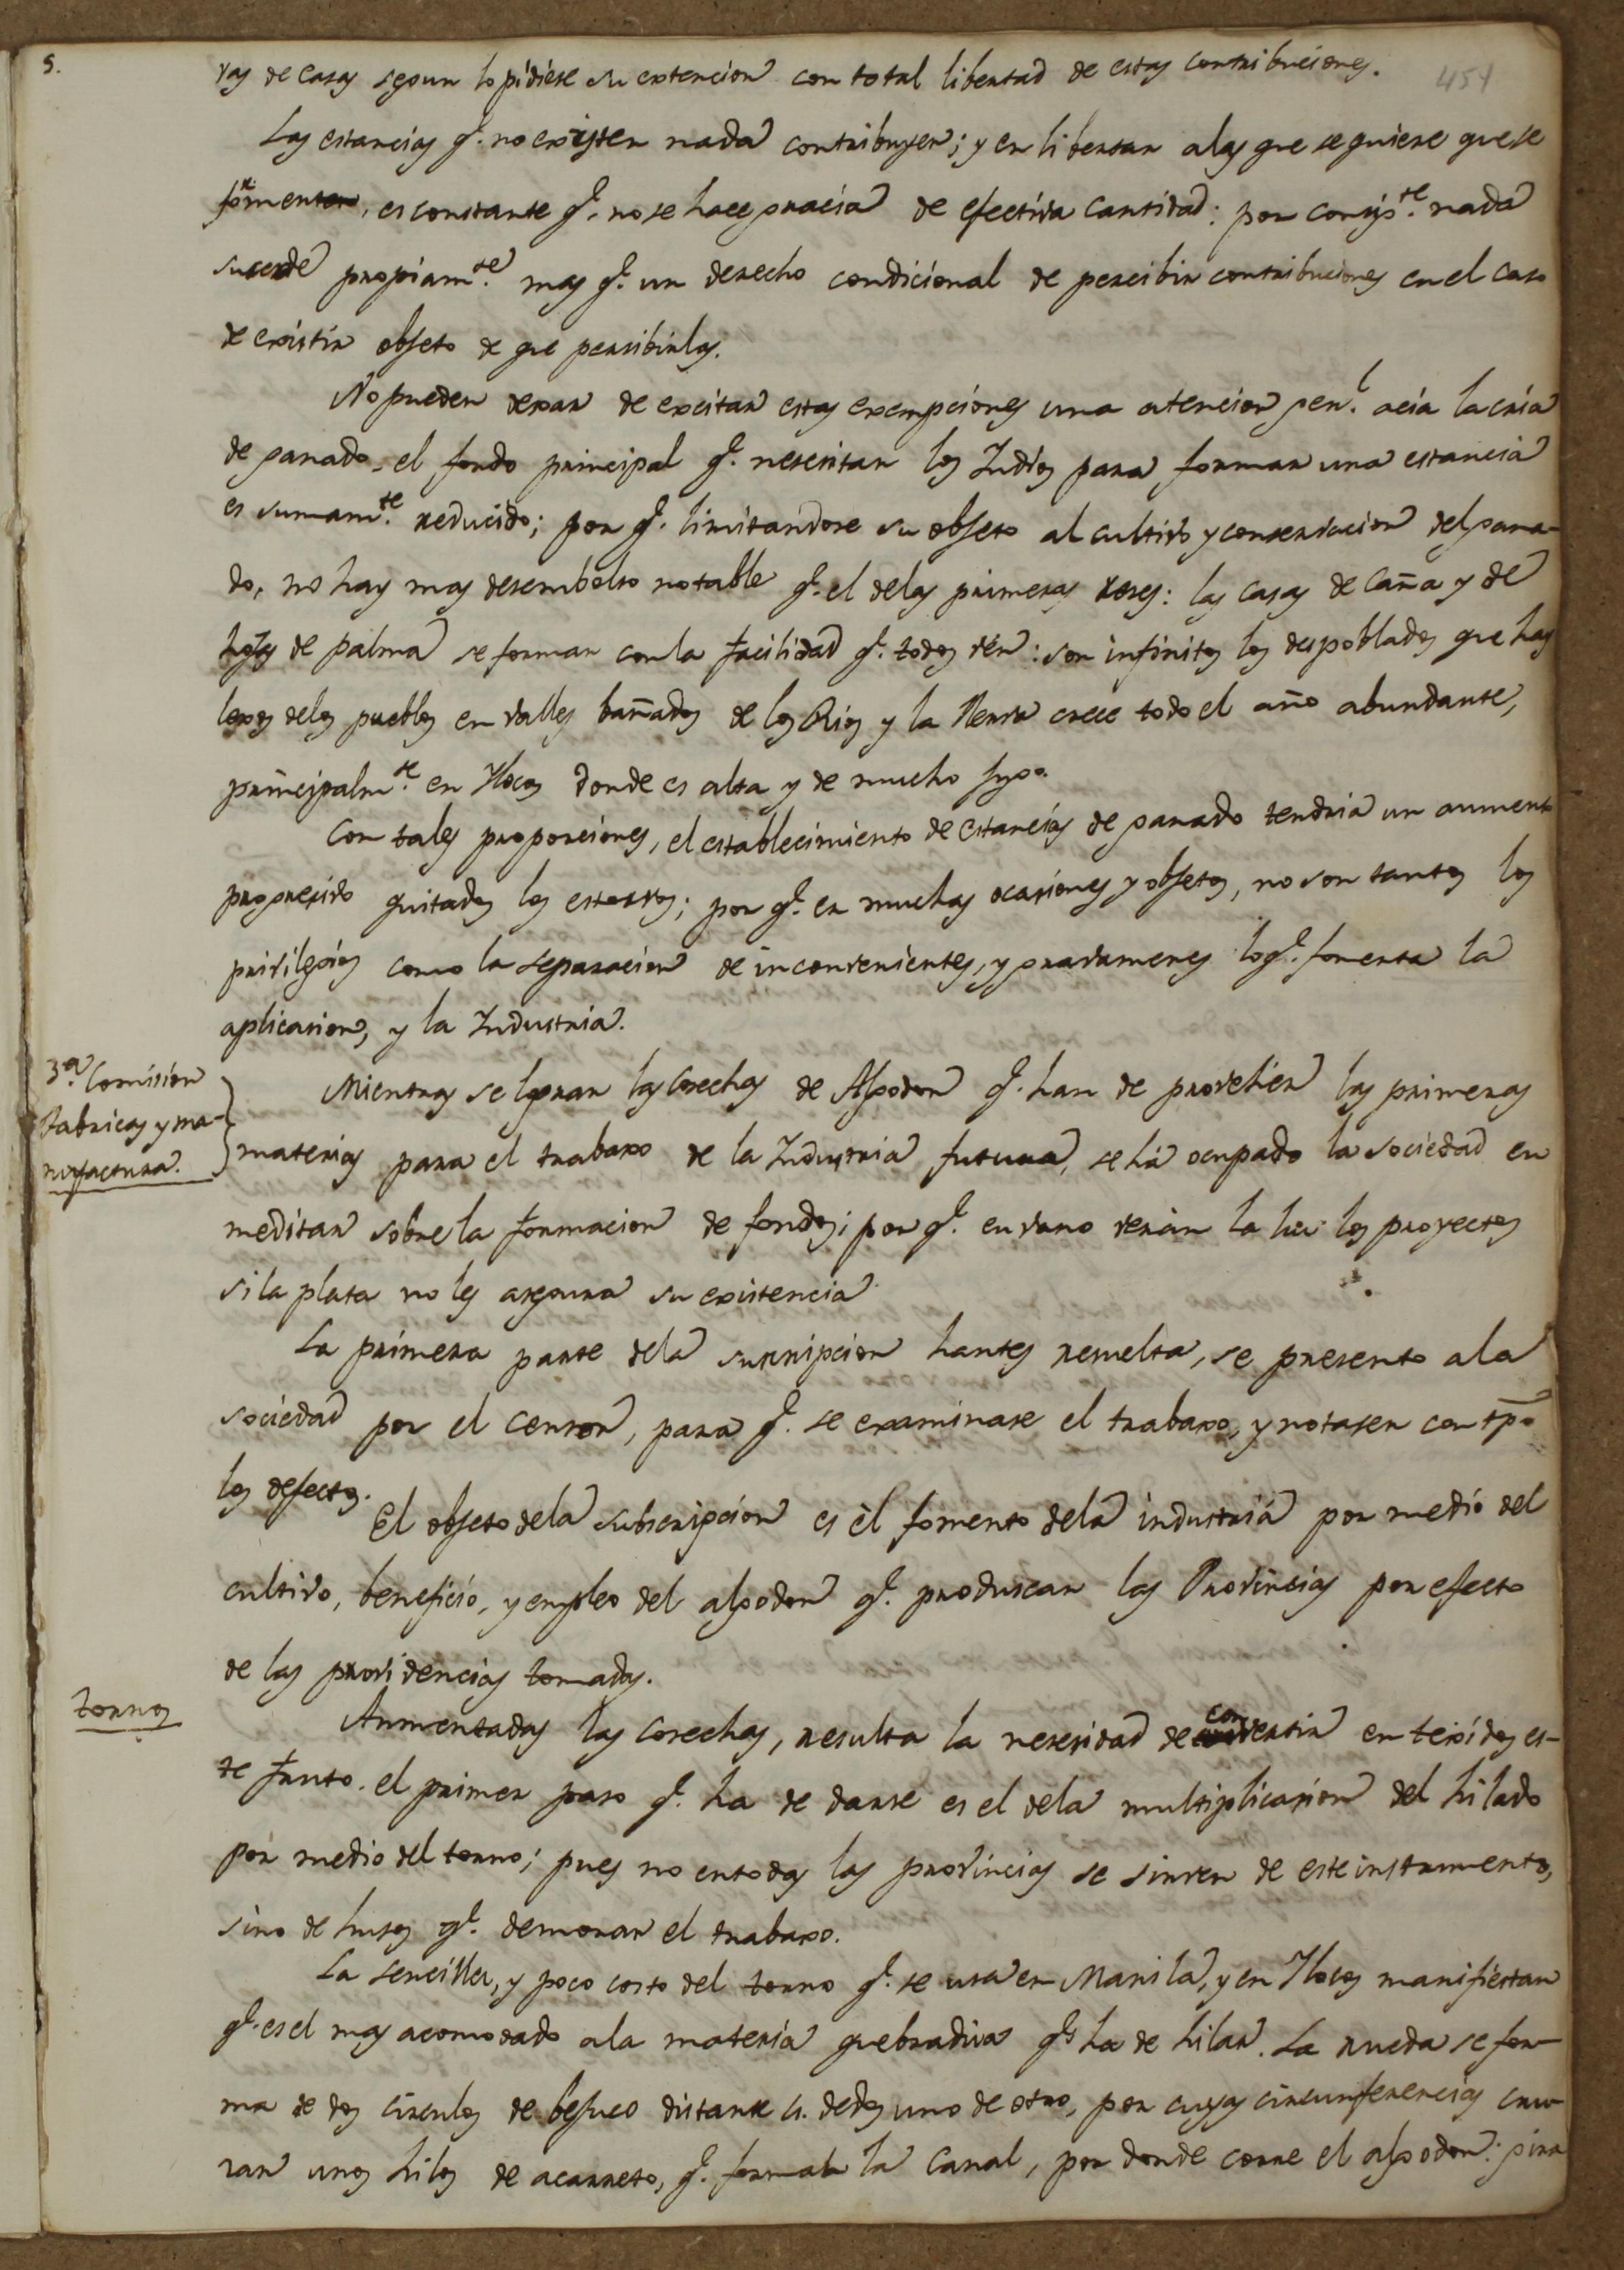 5.
454
ras de casas segun lo pidiese su extencion con total libertad de estas contribuciones.
Las estancias q.e no existen nada contribuyen; y en libertar alas que se quiere que se
fomenten, es constante q.e no se hace gracia de efectiva cantidad: por consig.te nada
sucede propiam.te mas q.e un derecho condicional de percibir contribuciones en el caso
de existir objeto de que persibirlas.
No pueden dexar de excitar estas exempciones una atencion gen.l acia la cria
de ganado. el fondo principal q.e nesesitan los Indios para formar una estancia
es sumam.te reducido; por q.e limitandose su objeto al cultivo y conservacion del gana-
do, no hay mas desembolso notable q.e el delas primeras reses: las casas de caña y de
hojas de palma se forman con la facilidad q.e todos vén: son infinitos los despoblados que hay
lexos delos pueblos en valles bañados de los Rios y la Yerva crece todo el año abundante,
principalm.te en Ylocos donde es alta y de mucho jugo.
Con tales proporciones, el establecimiento de estancias de ganado tendria un aumento
progresivo quitados los estorvos; por q.e en muchas ocasiones y objetos, no son tantos los
privilegios como la separacion de inconvenientes, y gravamenes lo q.e fomenta la
aplicasion, y la Industria.
3.a Comision
Fabricas y ma-
nufactura.
Mientras se logran las cosechas de Algodon q.e han de proveher las primeras
materias para el trabaxo de la Industria futura, se há ocupado la sociedad en
meditar sobre la formacion de fondos; por q.e en vano verán la luz los proyectos
si la plata no les asegura su existencia.
La primera parte dela suscripcion hantes resuelta, se presento ala
sociedad por el censor, para q.e se examinase el trabaxo, y notasen con tpō
los defectos.
El objeto dela subscripcion es èl fomento dela industriá por medio del
cultivo, beneficio, y empleo del algodon q.e produscan las Provincias por efecto
de las providencias tomadas.
tornos
Aumentadas las cosechas, resulta la nesesidad de convertir en texidos es-
te fruto. el primer paso q.e ha de darse es el dela multiplicasion del hilado
por medio del torno; pues no en todas las provincias se sirven de este instrumento,
sino de husos q.e demoran el trabaxo.
La sencilles, y poco costo del torno q.e se usa en Manila, y en Ylocos manifiestan
q.e es el mas acomodado ala materia quebradiza q.e ha de hilar. La rueda se for-
ma de dos circulos de bejuco distante 4. dedos uno de otro, por cuyas circunferencias cru-
zan unos hilos de acarreto, q.e forman la Canal, por donde corre el algodon: gira